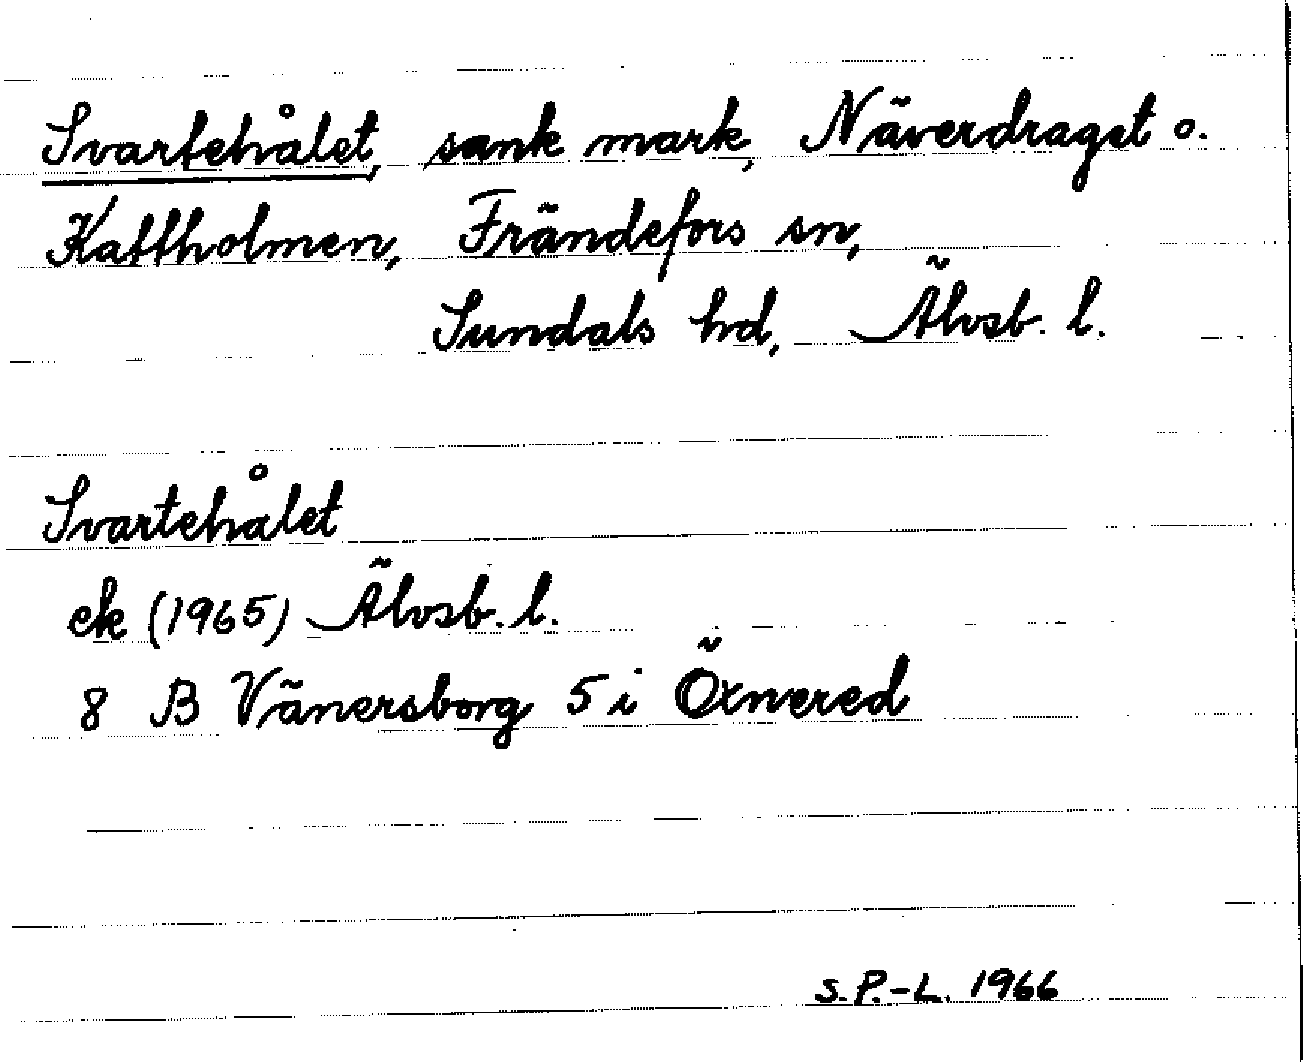 Svartehålet, sank mark, Näverdraget o.
Kattholmen, Frändefors sn,
Sundals hd, Älvsb. l.
Svartehålet
ek (1965) Älvsb. l.
8 B Vänersborg 5 i Öxnered
S.P.-L. 1966